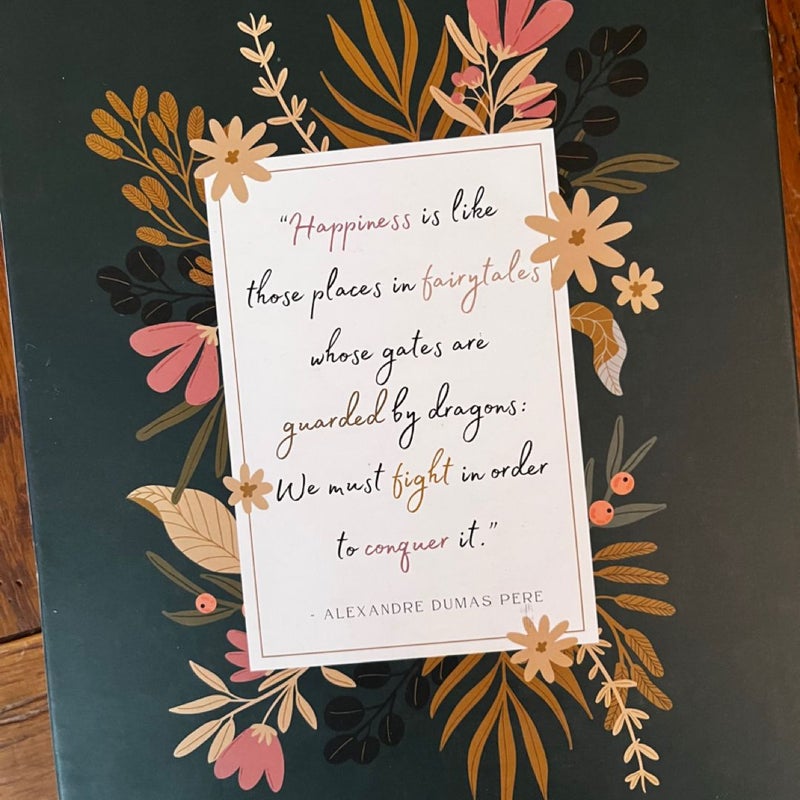 “Happiness is like
those places in fairytales
whose gates are
guarded by dragons:
We must fight in order
to conquer it.”
- ALEXANDRE DUMAS PERE